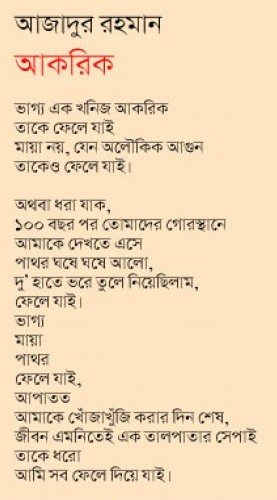 আজাদুর রহমান
আকরিক
ভাগ্য এক খনিজ আকরিক
তাকে ফেলে যাই
মায়া নয়, যেন অলৌকিক আগুন
তাকেও ফেলে যাই।
অথবা ধরা যাক,
১০০ বছর পর তোমাদের গোরস্থানে
আমাকে দেখতে এসে
পাথর ঘষে ঘষে আলো,
দু' হাতে ভরে তুলে নিয়েছিলাম,
ফেলে যাই।
ভাগ্য
মায়া
পাথর
ফেলে যাই,
আপাতত
আমাকে খোঁজাখুঁজি করার দিন শেষ,
জীবন এমনিতেই এক তালপাতার সেপাই
তাকে ধরো
আমি সব ফেলে দিয়ে যাই।